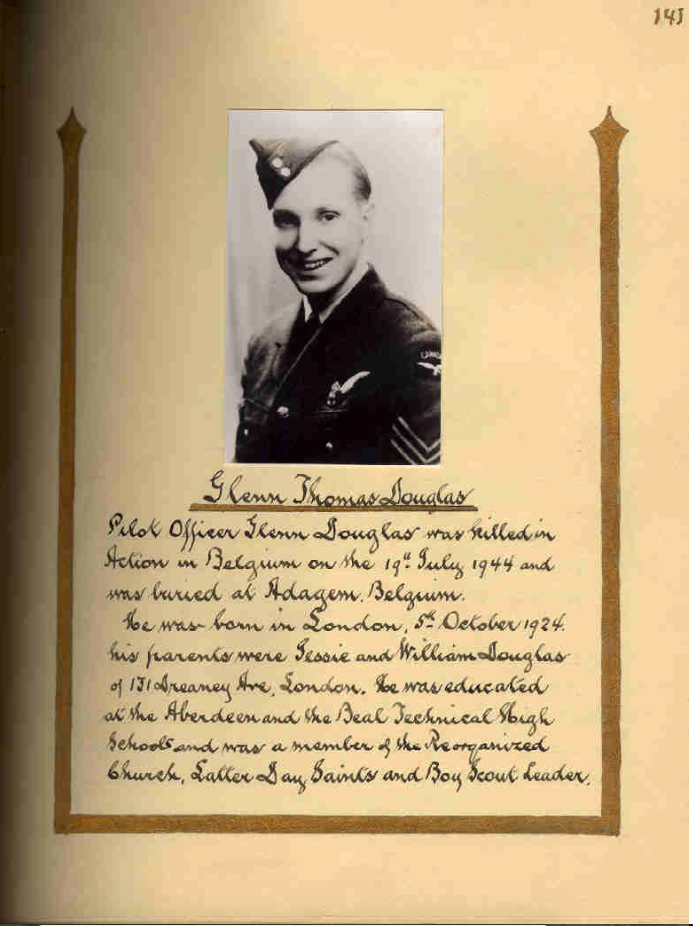 141
CANADA
Glenn Thomas Douglas
Pilot Officer Glenn Douglas was killed in
Action in Belgium on the 19th July 1944 and
was buried at Adagem, Belgium.
He was born in London, 5th October 1924.
his parents were Jessie and William Douglas
of 131 Dreaney Ave, London. He was educated
at the Aberdeen and the Beal Technical High
Schools and was a member of the Reorganized
Church, Latter Day Saints and Boy Scout Leader.